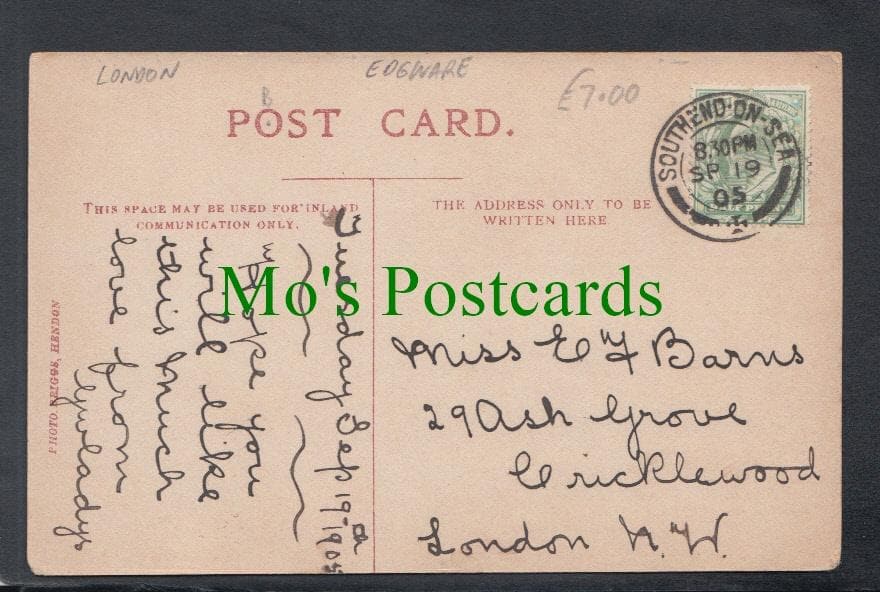 LONDON
EDGWARE
£7.00
B
POST CARD.
SOUTHEND-ON-SEA
8.30PM
SP 19
05
THIS SPACE MAY BE USED FOR INLAND
COMMUNICATION ONLY.
THE ADDRESS ONLY TO BE
WRITTEN HERE
Tuesday Sep 19th 1905
"Hope you
will like
this much
love from
Gwladys
Miss E F Barns
29 Ash Grove
Cricklewood
London N.W.
PHOTO. BRIGGS, HENDON
Mo's Postcards